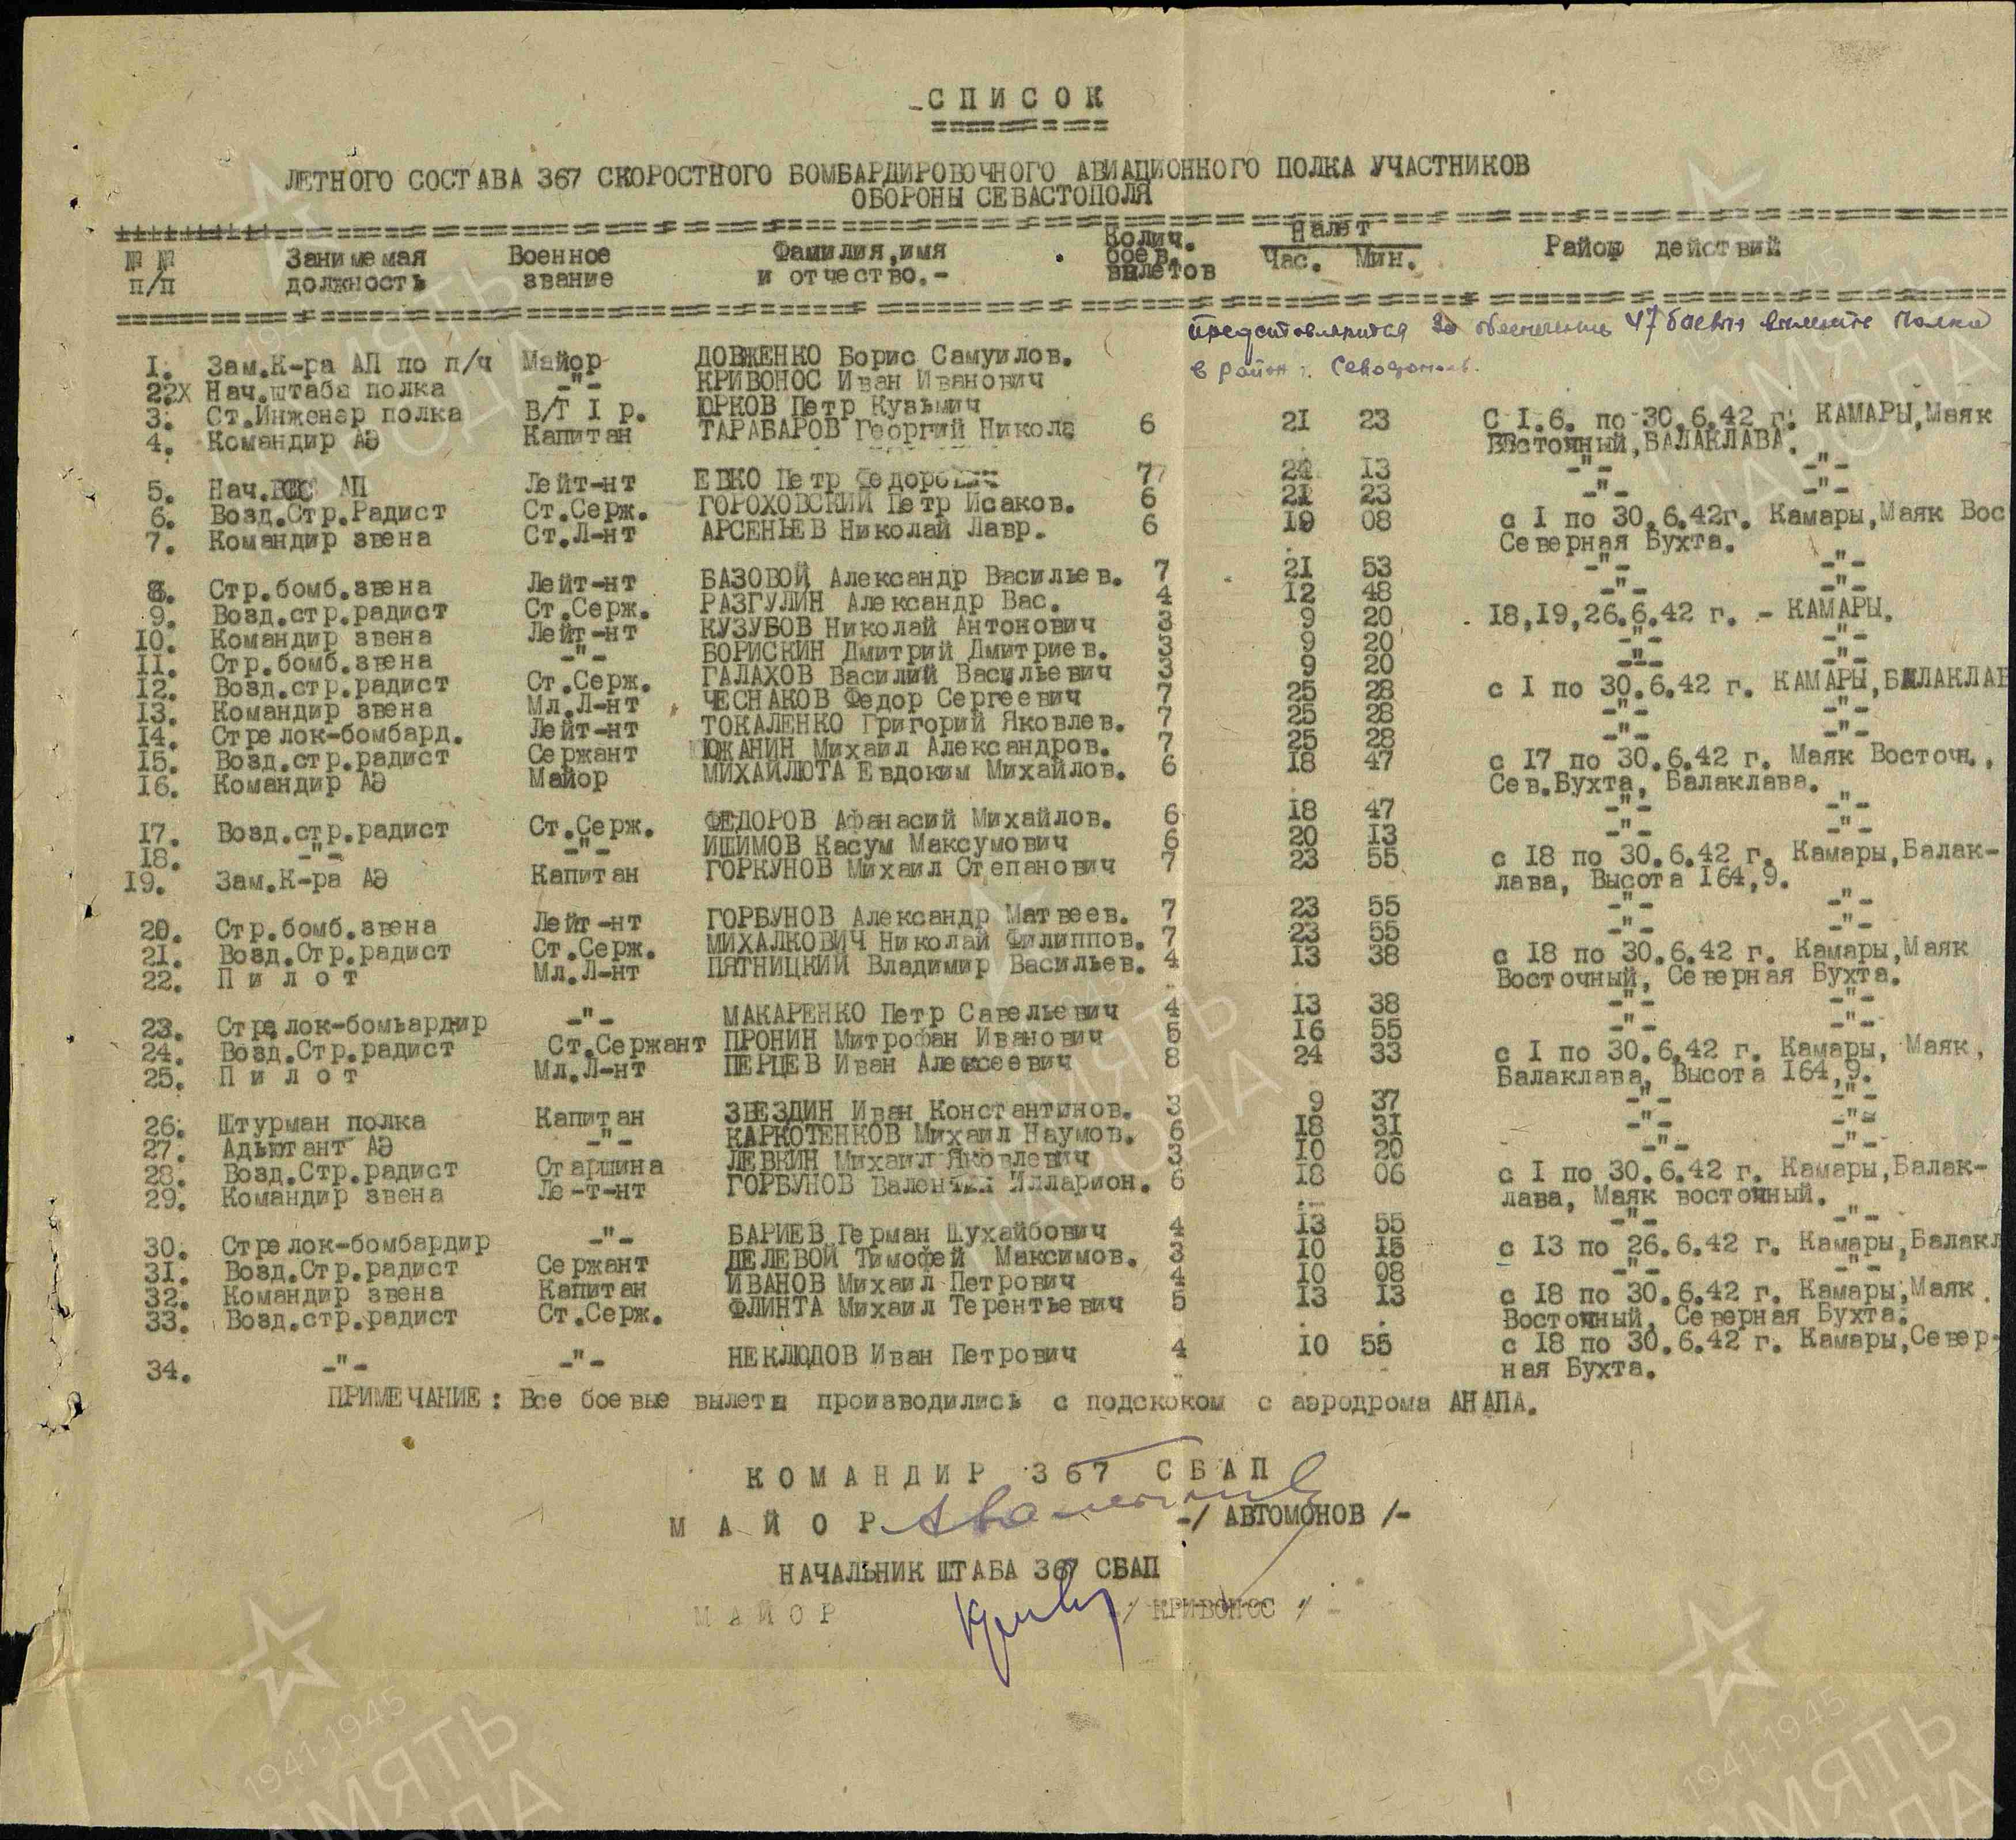 СПИСОК
ЛЕТНОГО СОСТАВА 367 СКОРОСТНОГО БОМБАРДИРОВОЧНОГО АВИАЦИОННОГО ПОЛКА УЧАСТНИКОВ
ОБОРОНЫ СЕВАСТОПОЛЯ
№ № п/п Занимаемая должность Военное звание Фамилия,имя и отчество.- Колич. боев. вылетов Налет Час. Мин. Район действий
Представляются за обеспечение 47 боевых вылетов полка
в район г. Севастополь.
1. Зам.К-ра АП по п/ч Майор ДОВЖЕНКО Борис Самуилов.
2. Нач.штаба полка -"- КРИВОНОС Иван Иванович
3. Ст.Инженер полка В/Т I р. ЮРКОВ Петр Кузьмич
4. Командир АЭ Капитан ТАРАБАРОВ Георгий Никола 6 21 23 С I.6. по 30.6.42 г. КАМАРЫ,Маяк
Восточный,БАЛАКЛАВА.
5. Нач.ВСС АП Лейт-нт ЕВКО Петр Федорович 7 24 13 -"- -"-
6. Возд.Стр.Радист Ст.Серж. ГОРОХОВСКИЙ Петр Исаков. 6 21 23 -"- -"-
7. Командир звена Ст.Л-нт АРСЕНЬЕВ Николай Лавр. 6 19 08 с I по 30.6.42г. Камары,Маяк Вос
Северная Бухта.
8. Стр.бомб.звена Лейт-нт БАЗОВОЙ Александр Васильев. 7 21 53 -"- -"-
9. Возд.стр.радист Ст.Серж. РАЗГУЛИН Александр Вас. 4 12 48 -"- -"-
10. Командир звена Лейт-нт КУЗУБОВ Николай Антонович 3 9 20 18,19,26.6.42 г. - КАМАРЫ.
11. Стр.бомб.звена -"- БОРИСКИН Дмитрий Дмитриев. 3 9 20 -"- -"-
12. Возд.стр.радист Ст.Серж. ГАЛАХОВ Василий Васильевич 3 9 20 -"- -"-
13. Командир звена Мл.Л-нт ЧЕСНАКОВ Федор Сергеевич 7 25 28 с I по 30.6.42 г. КАМАРЫ,БАЛАКЛАВ
14. Стрелок-бомбард. Лейт-нт ТОКАЛЕНКО Григорий Яковлев. 7 25 28 -"- -"-
15. Возд.стр.радист Сержант ЮЖАНИН Михаил Александров. 7 25 28 -"- -"-
16. Командир АЭ Майор МИХАЙЛЮТА Евдоким Михайлов. 6 18 47 с 17 по 30.6.42 г. Маяк Восточн.,
Сев.Бухта, Балаклава.
17. Возд.стр.радист Ст.Серж. ФЕДОРОВ Афанасий Михайлов. 6 18 47 -"- -"-
18. -"- -"- ИШИМОВ Касум Максумович 6 20 13 -"- -"-
19. Зам.К-ра АЭ Капитан ГОРКУНОВ Михаил Степанович 7 23 55 с 18 по 30.6.42 г. Камары,Балак-
лава, Высота 164,9.
20. Стр.бомб.звена Лейт-нт ГОРБУНОВ Александр Матвеев. 7 23 55 -"- -"-
21. Возд.Стр.радист Ст.Серж. МИХАЛКОВИЧ Николай Филиппов. 7 23 55 -"- -"-
22. Пилот Мл.Л-нт ПЯТНИЦКИЙ Владимир Васильев. 4 13 38 с 18 по 30.6.42 г. Камары,Маяк
Восточный, Северная Бухта.
23. Стрелок-бомьардир -"- МАКАРЕНКО Петр Савельевич 4 13 38 -"- -"-
24. Возд.Стр.радист Ст.Сержант ПРОНИН Митрофан Иванович 5 16 55 -"- -"-
25. Пилот Мл.Л-нт ПЕРЦЕВ Иван Алексеевич 8 24 33 с I по 30.6.42 г. Камары, Маяк,
Балаклава, Высота 164,9.
26. Штурман полка Капитан ЗВЕЗДИН Иван Константинов. 3 9 37 -"- -"-
27. Адьютант АЭ -"- КАРКОТЕНКОВ Михаил Наумов. 6 18 31 -"- -"-
28. Возд.Стр.радист Старшина ЛЕВКИН Михаил Яковлевич 3 10 20 -"- -"-
29. Командир звена Ле-т-нт ГОРБУНОВ Валентин Илларион. 6 18 06 с I по 30.6.42 г. Камары,Балак-
лава, Маяк восточный.
30. Стрелок-бомбардир -"- БАРИЕВ Герман Шухайбович 4 13 55 -"- -"-
31. Возд.Стр.радист Сержант ДЕЛЕВОЙ Тимофей Максимов. 3 10 15 с 13 по 26.6.42 г. Камары,Балакл
32. Командир звена Капитан ИВАНОВ Михаил Петрович 4 10 08 -"- -"-
33. Возд.стр.радист Ст.Серж. ФЛИНТА Михаил Терентьевич 5 13 13 с 18 по 30.6.42 г. Камары,Маяк
Восточный, Северная Бухта.
34. -"- -"- НЕКЛЮДОВ Иван Петрович 4 10 55 с 18 по 30.6.42 г. Камары,Север-
ная Бухта.
ПРИМЕЧАНИЕ: Все боевые вылеты производились с подскоком с аэродрома АНАПА.
КОМАНДИР 367 СБАП
МАЙОР -/ АВТОМОНОВ /-
НАЧАЛЬНИК ШТАБА 367 СБАП
МАЙОР -/ КРИВОНОС /-
1941-1945
ПАМЯТЬ
НАРОДА